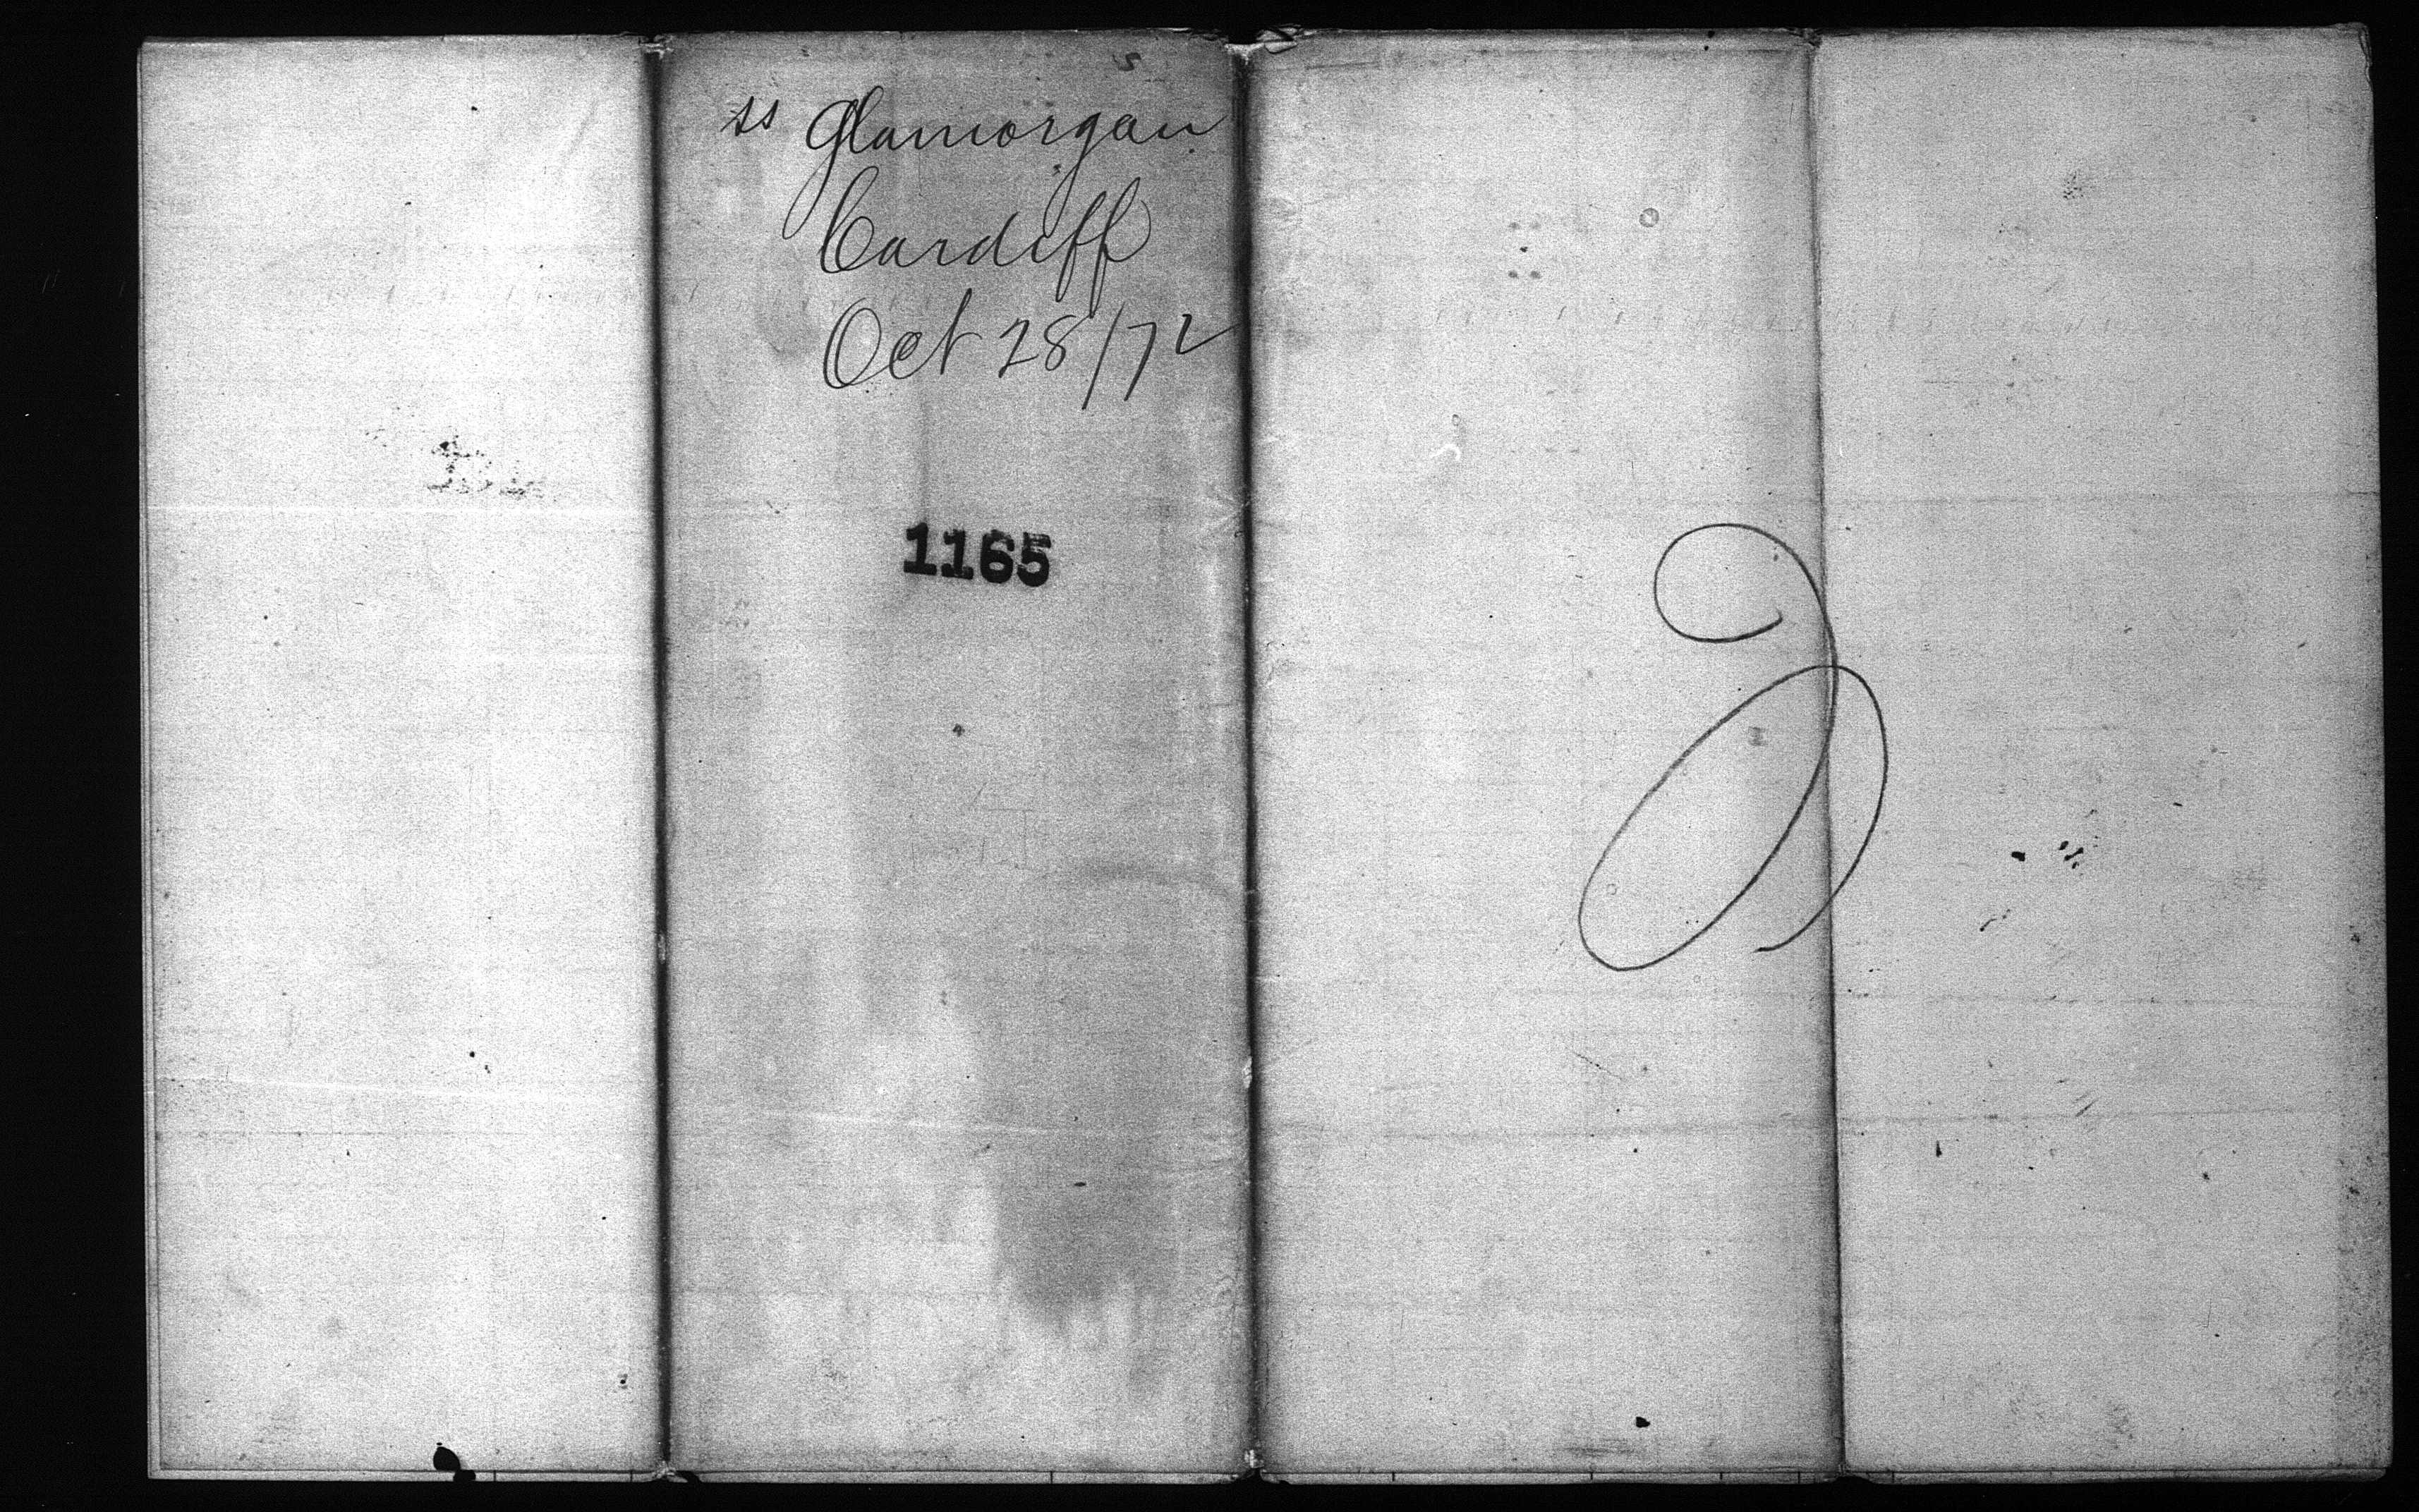 ss Glamorgan
Cardiff
Oct 28/72
1165